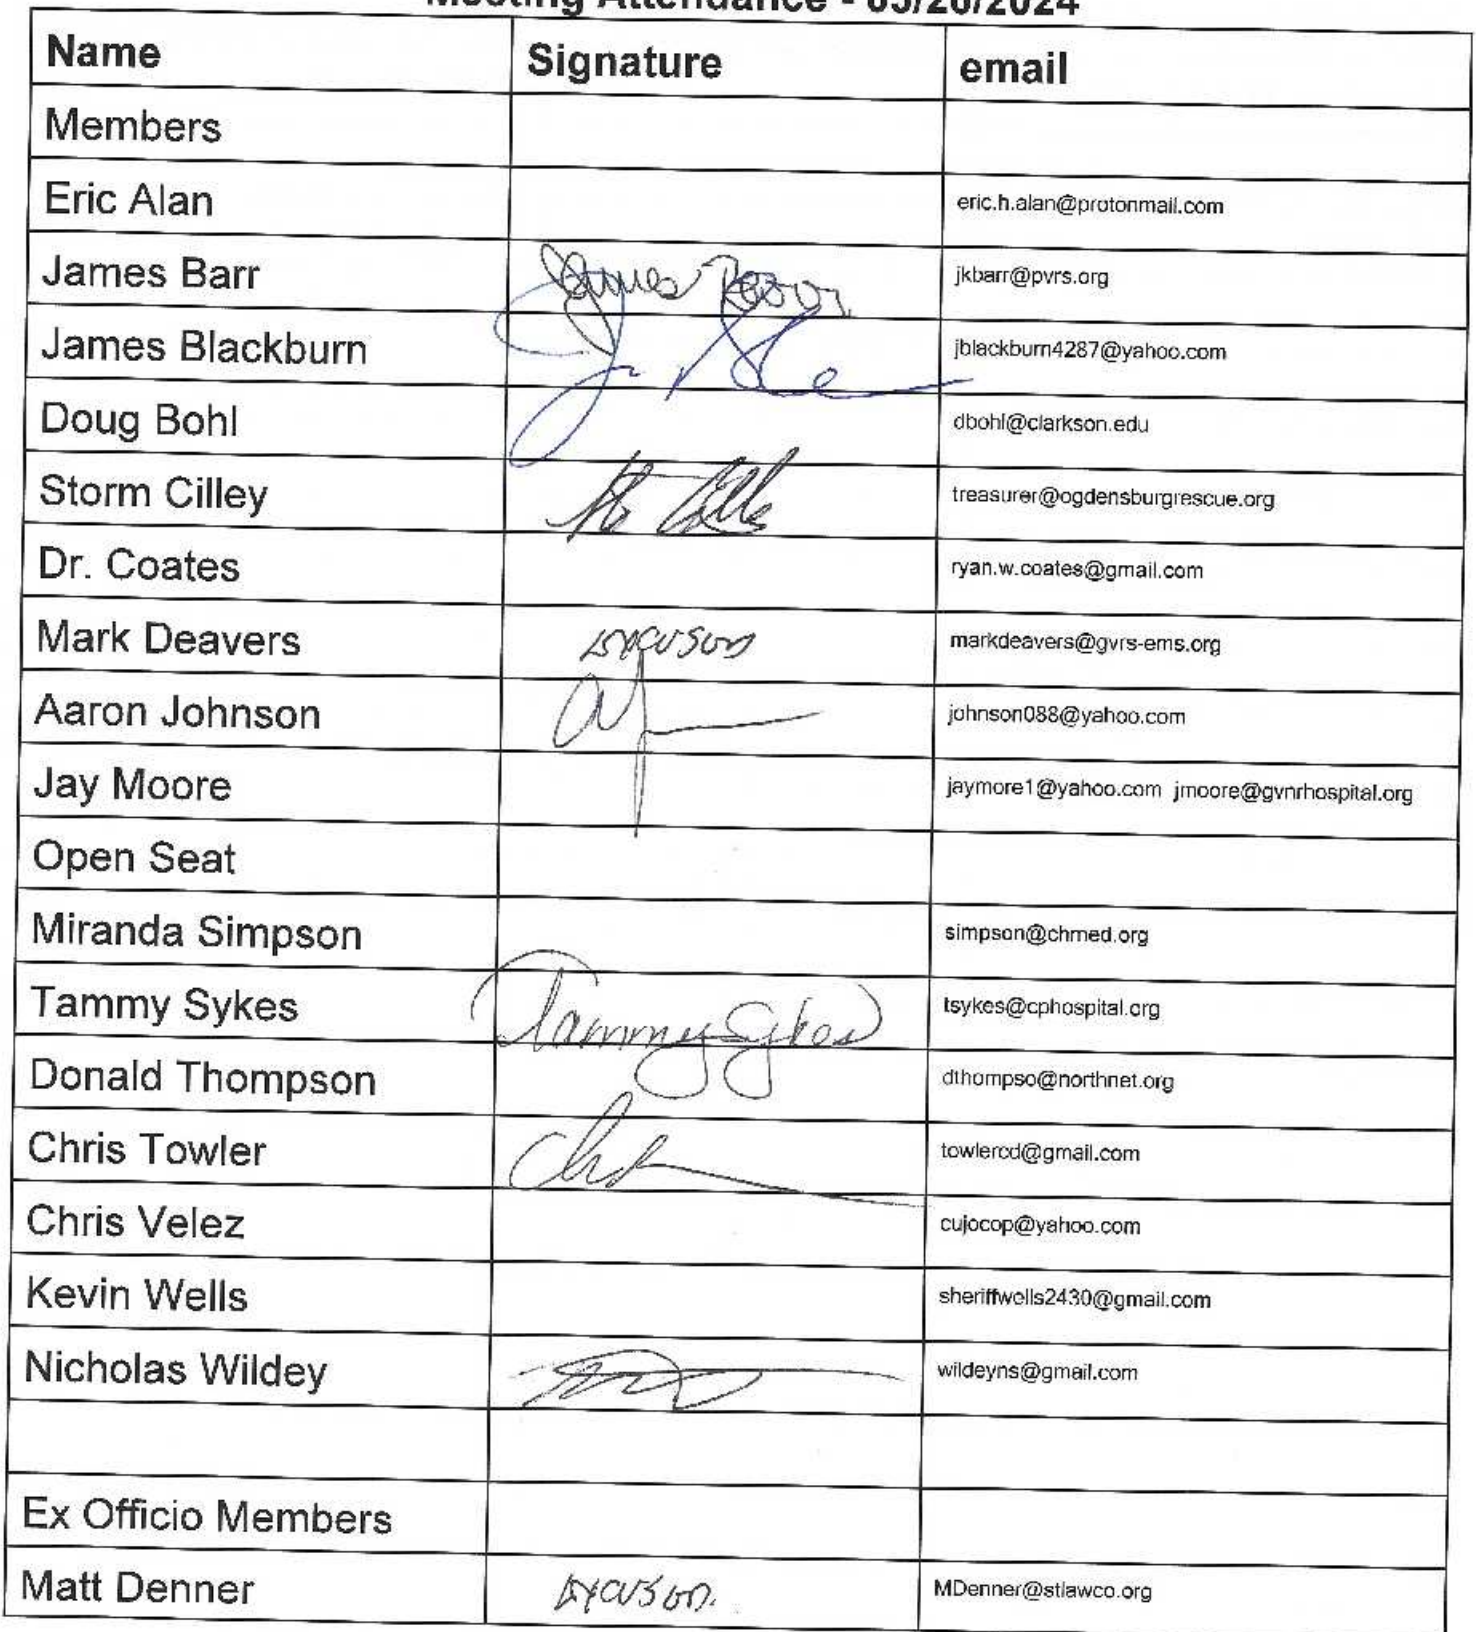 Meeting Attendance - 03/20/2024
Name Signature email
Members
Eric Alan eric.h.alan@protonmail.com
James Barr James Barr jkbarr@pvrs.org
James Blackburn jblackburn4287@yahoo.com
Doug Bohl dbohl@clarkson.edu
Storm Cilley treasurer@ogdensburgrescue.org
Dr. Coates ryan.w.coates@gmail.com
Mark Deavers EXCUSED markdeavers@gvrs-ems.org
Aaron Johnson johnson088@yahoo.com
Jay Moore jaymore1@yahoo.com jmoore@gvnrhospital.org
Open Seat
Miranda Simpson simpson@chmed.org
Tammy Sykes Tammy Sykes tsykes@cphospital.org
Donald Thompson dthompso@northnet.org
Chris Towler towlercd@gmail.com
Chris Velez cujocop@yahoo.com
Kevin Wells sheriffwells2430@gmail.com
Nicholas Wildey wildeyns@gmail.com
Ex Officio Members
Matt Denner EXCUSED. MDenner@stlawco.org